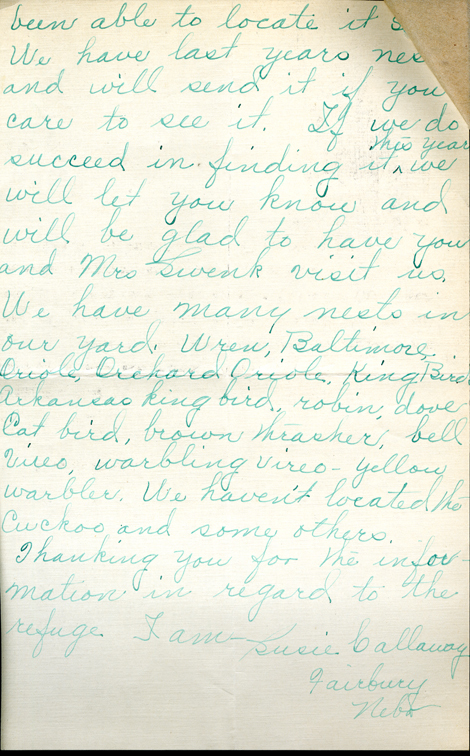 been able to locate it
We have last years
and will send it if you
care to see it. If we do
this year
succeed in finding it ^ we
will let you know and
will be glad to have you
and Mrs Swenk visit us.
We have many nests in
our yard. Wren, Baltimore
Oriole, Orchard Oriole, King Bird
Arkansas king bird, robin, dove
Cat bird, brown thrasher, bell
Vireo, warbling vireo - yellow
warbler. We haven't located the
Cuckoo and some others.
Thanking you for the infor-
mation in regard to the
refuge I am -
Susie Callaway
Fairbury
Nebr